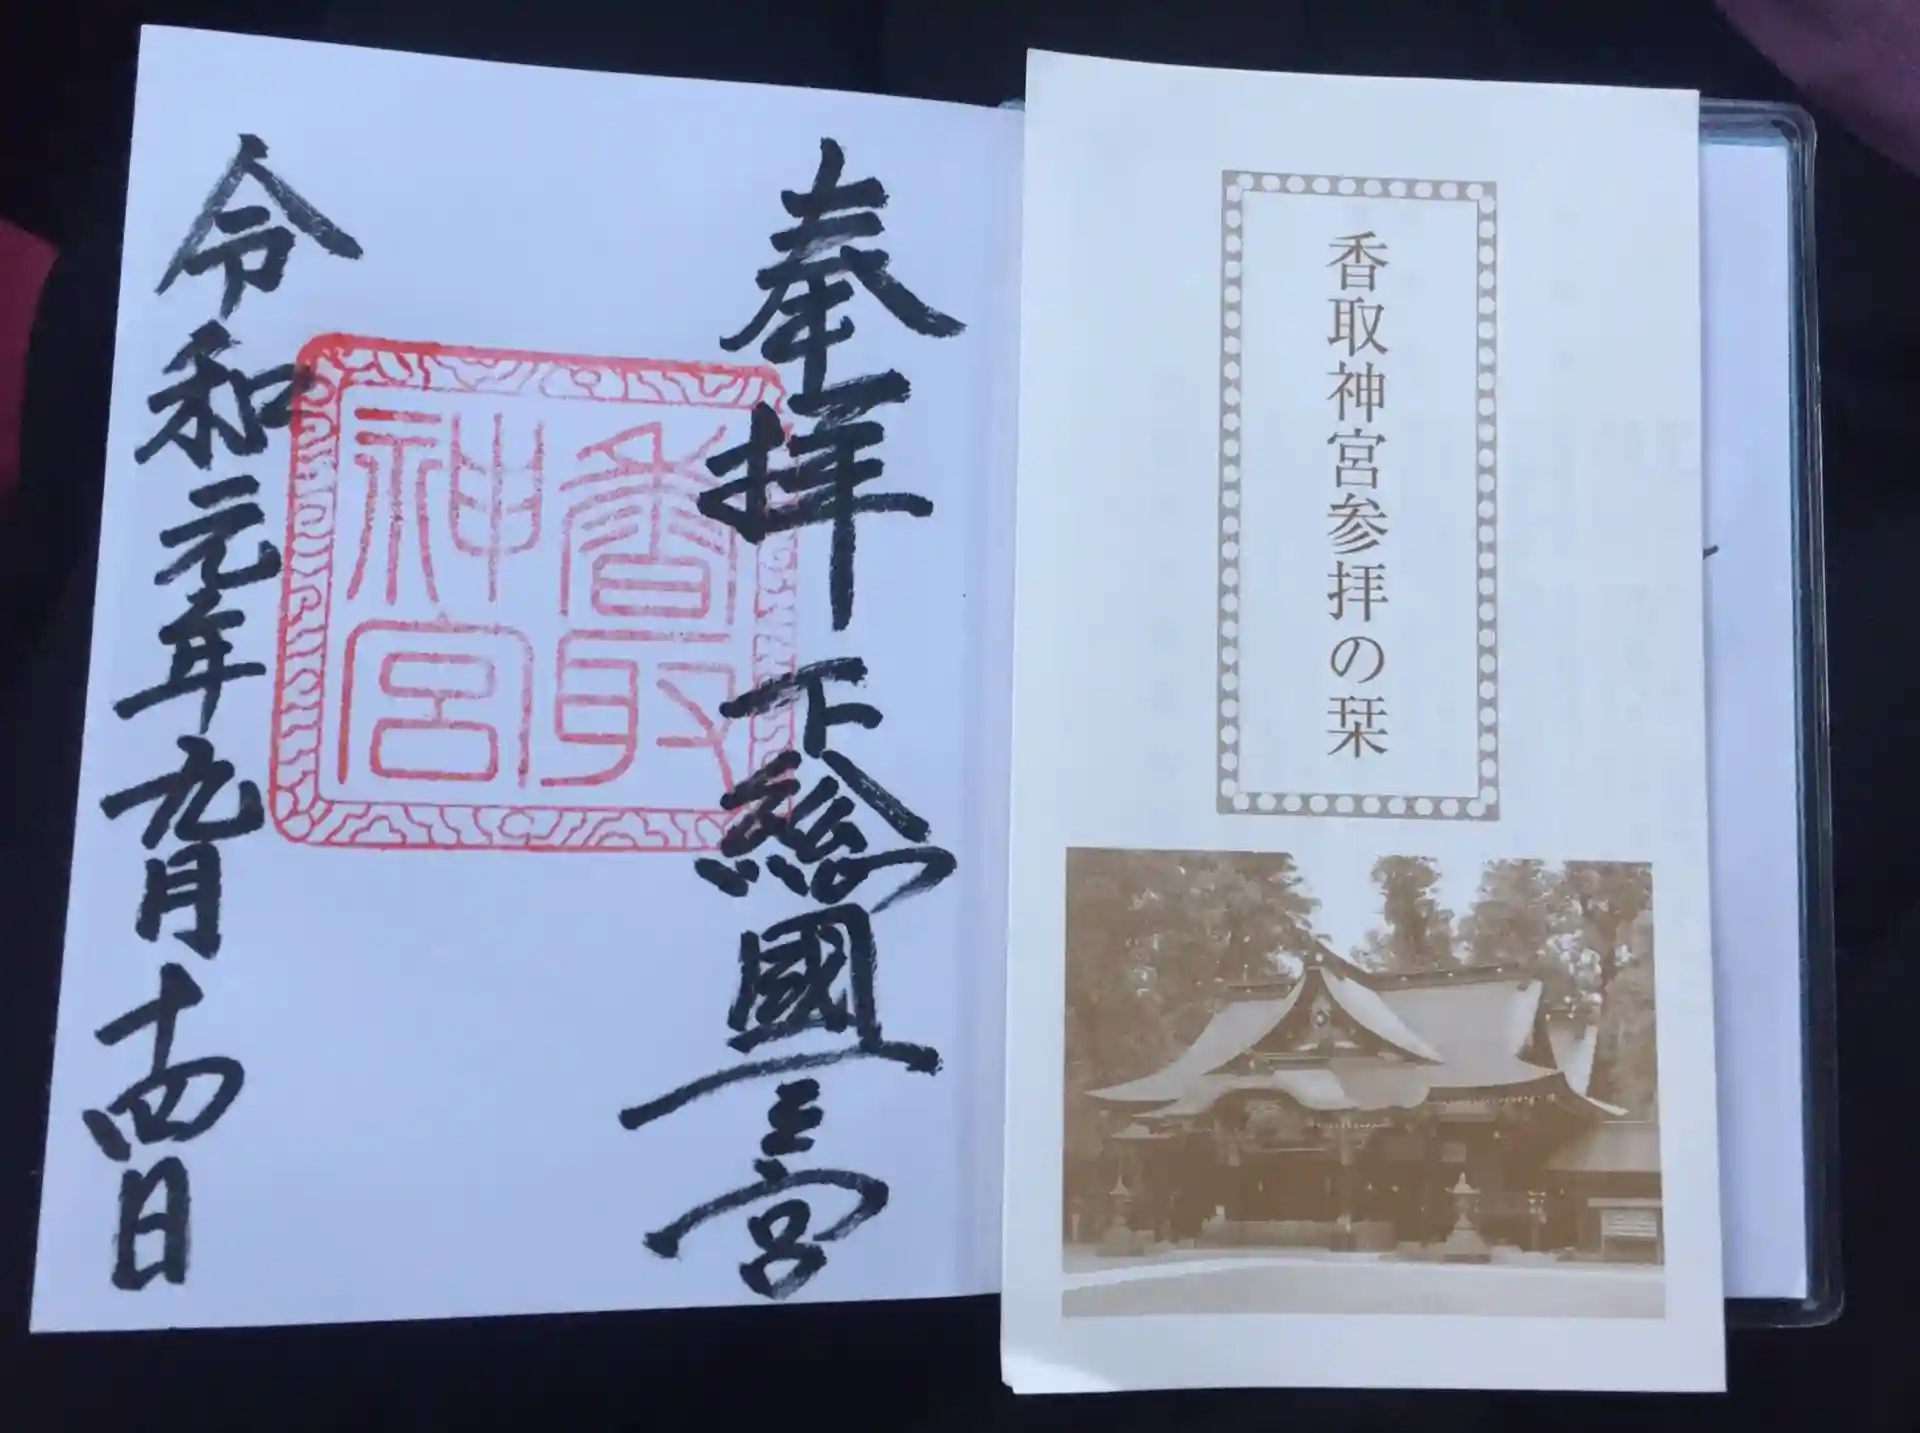 香取神宮参拝の栞
奉拝 下總國一之宮
香取
神宮
令和元年九月十四日